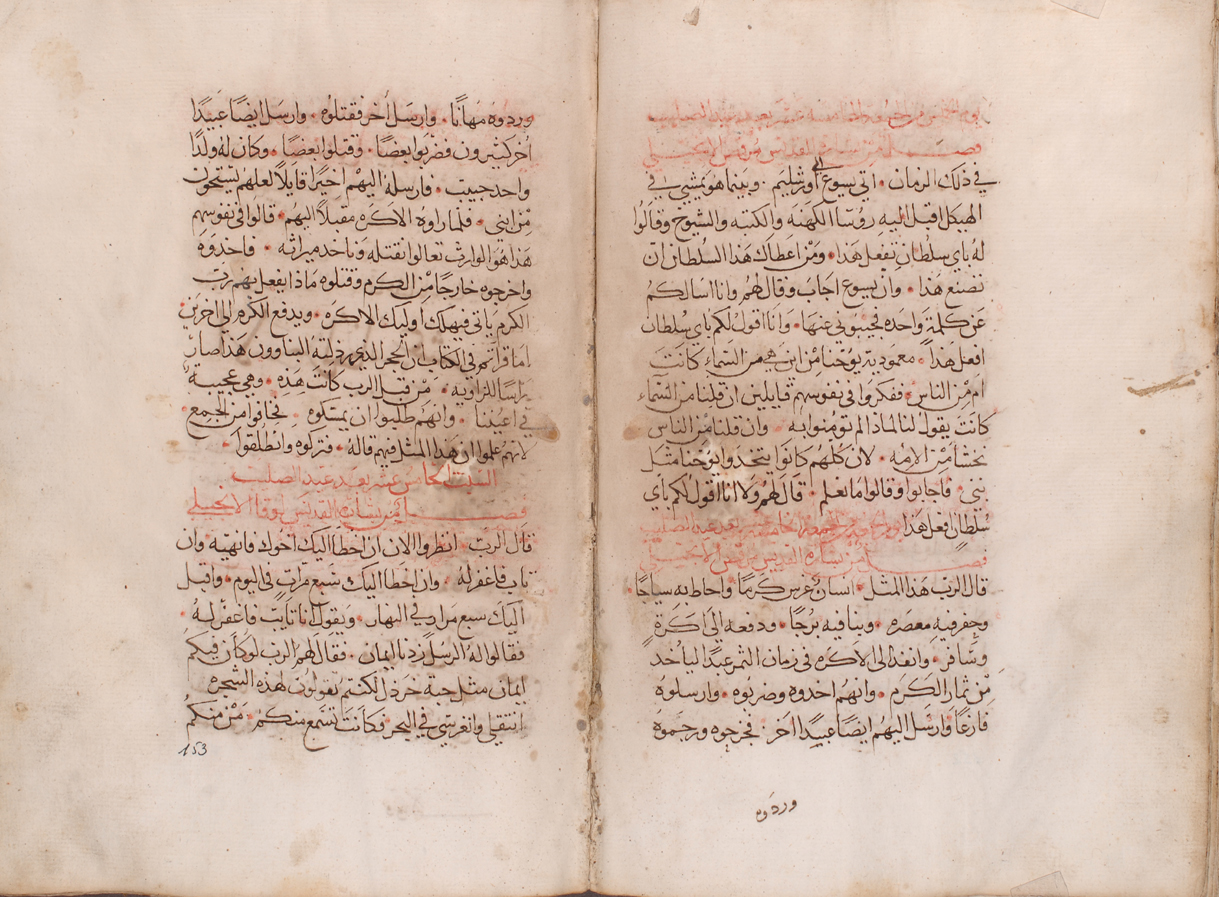 يوم الخميس من الجمعة الخامسة عشر بعد عيد الصليب
فصل من بشارة القديس مرقس الانجيلي
في ذلك الزمان • اتى يسوع الى أورشليم • وبينما هو يمشي في
الهيكل اقبل اليه روسا الكهنه والكتبه والشيوخ وقالوا
له باي سلطان تفعل هذا • ومن اعطاك هذا السلطان ان
تصنع هذا • وان يسوع اجاب وقال لهم وانا اسالكم
عن كلمة واحده تجيبوني عنها • وانا اقول لكم باي سلطان
افعل هذا • معموديه يوحنا من اين هي من السماء كانت
ام من الناس • ففكروا في نفوسهم قايلين ان قلنا من السماء
كانت يقول لنا لماذا لم تومنوا به • وان قلنا من الناس
نخشا من الامه • لان كلهم كانوا يتخدوا يوحنا مثل
نبي • فاجابوا وقالوا ما نعلم • قال لهم ولا انا اقول لكم باي
سلطان افعل هذا
فصل من بشارة القديس مرقس الانجيلي
قال الرب هذا المثل • انسان غرس كرمًا واحاط به سياجًا •
وحفر فيه معصره • وبنا فيه برجًا • ودفعه الى اكرة
وسافر • وانفد الى الاكره في زمان الثمر عبدًا لياخد
من ثمار الكرم • وانهم اخدوه وضربوه • وارسلوه
فارغًا وارسل اليهم ايضًا عبيدًا اخر • فخرجوه ورجموه
وردوه
وردوه مهانًا • وارسل أخر فقتلوه • وارسل ايضًا عبيدًا
اخر كثيرون فضربوا بعضًا • وقتلوا بعضًا • وكان له ولدًا
واحد حبيب • فارسله اليهم اخيرًا قايلاً لعلهم يستحون
من ابني • فلما راوه الاكره مقبلاً اليهم • قالوا في نفوسهم
هذا هو الوارث تعالوا نقتله وناخد ميراثه • فاخدوه
واخرجوه خارجًا من الكرم وقتلوه ماذا يفعل بهم رب
الكرم ياتي فيهلك اوليك الاكره • ويدفع الكرم الى اخرين •
اما قراتم في الكتاب ان الحجر الذي رذلته البناوون هذا صار
راسًا للزاويه • من قبل الرب كانت هذه • وهي عجيبة
في اعيننا • وانهم طلبوا ان يمسكوه • فخافوا من الجمع •
لانهم علموا ان هذا المثل فيهم قاله • فتركوه وانطلقوا •
السبت الخامس عشر بعد عيد الصليب
فصل من بشارة القديس لوقا الانجيلي
قال الرب • انظروا الان ان اخطا اليك اخوك فانهيه وان
تاب فاغفر له • وان اخطا اليك سبع مرات في اليوم • واقبل
اليك سبع مرار في النهار • ويقول انا تايب فاغفر له •
فقالوا له الرسل زدنا ايمان • فقال لهم الرب لو كان فيكم
ايمان مثل حبة خردل لكنتم تقولون لهذه الشجره
انتقلي وانغرسي في البحر فكانت تسمع منكم • من منكم
153